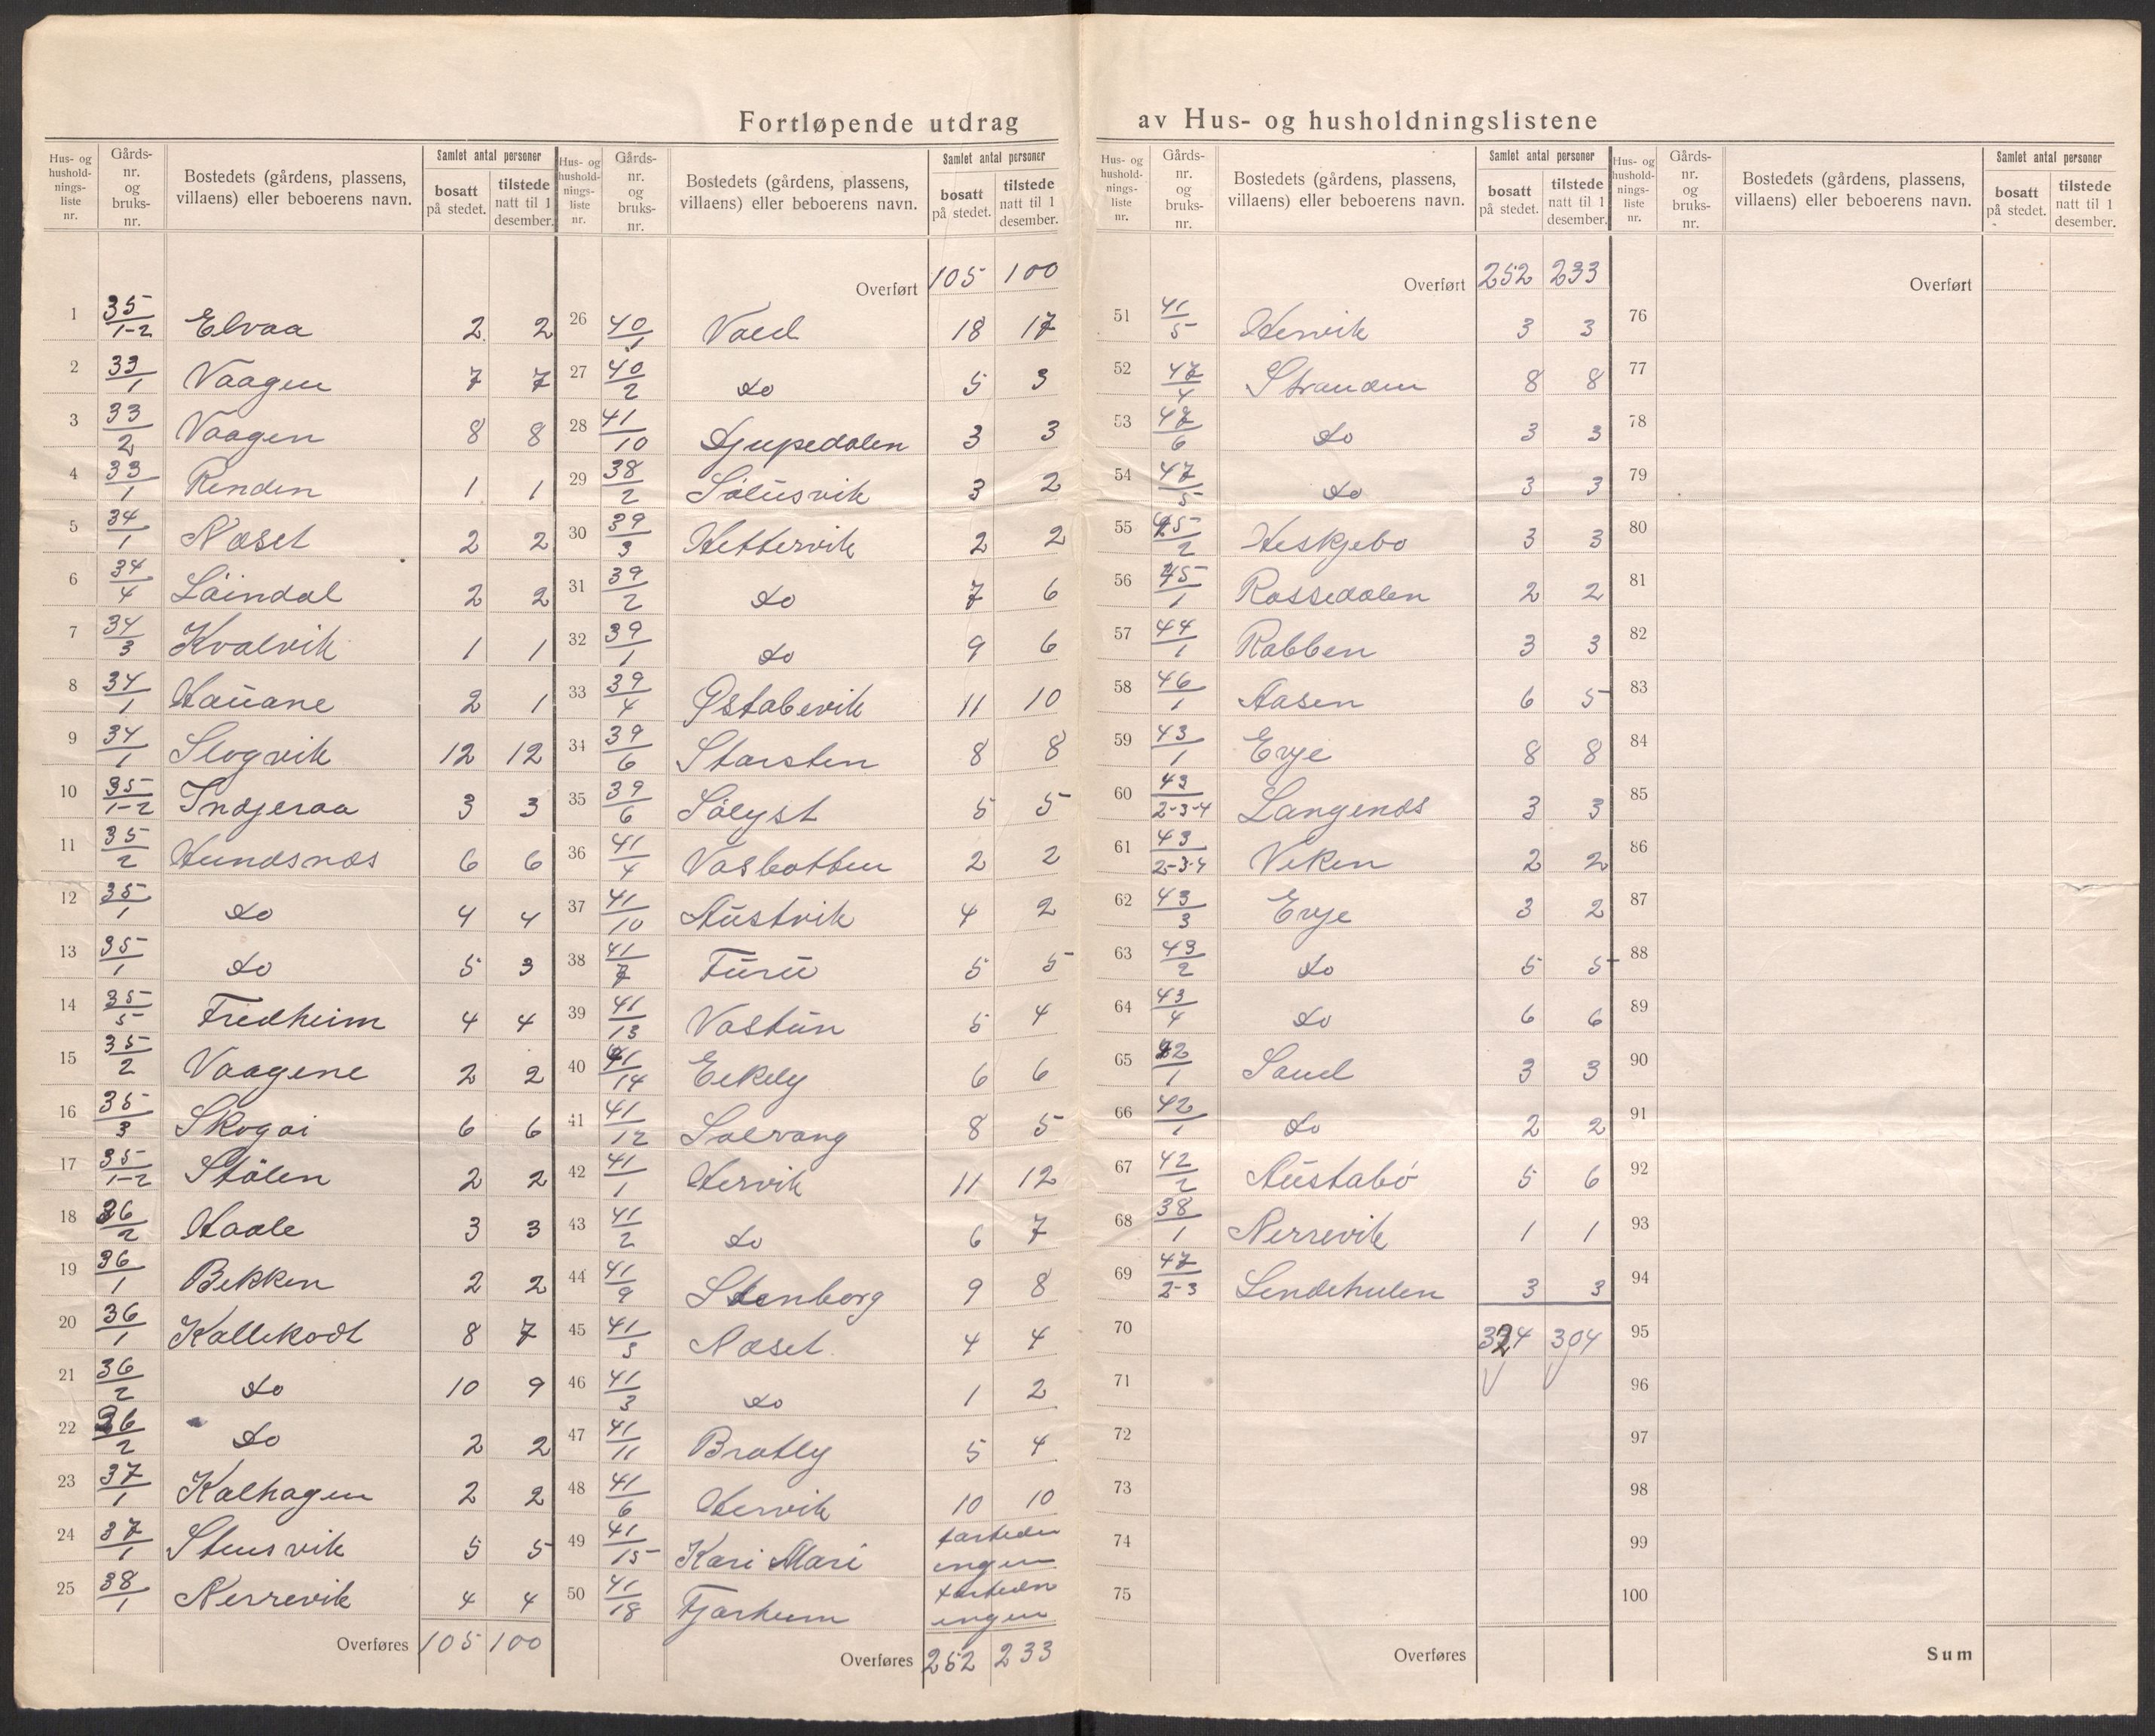 Fortløpende utdrag av Hus- og husholdningslistene
Hus- og hushold- nings- liste nr. | Gårds- nr. og bruks- nr. | Bostedets (gårdens, plassens, villaens) eller beboerens navn. | Samlet antal personer | bosatt på stedet. | tilstede natt til 1 desember.
1 35/1-2 Elvaa 2 2
2 33/1 Vaagen 7 7
3 33/2 Vaagen 8 8
4 33/1 Renden 1 1
5 34/1 Næset 2 2
6 34/4 Löindal 2 2
7 34/3 Kvalvik 1 1
8 34/1 Hauane 2 1
9 34/1 Slogvik 12 12
10 35/1-2 Indjeraa 3 3
11 35/2 Hundsnæs 6 6
12 35/1 do 4 4
13 35/1 do 5 3
14 35/5 Fredheim 4 4
15 35/2 Vaagene 2 2
16 35/3 Skogai 6 6
17 35/1-2 Stölen 2 2
18 36/2 Haale 3 3
19 36/1 Bekken 2 2
20 36/1 Kallekodt 8 7
21 36/2 do 10 9
22 36/2 do 2 2
23 37/1 Kalhagen 2 2
24 37/1 Stensvik 5 5
25 38/1 Nerrevik 4 4
Overføres 105 100
Hus- og hushold- nings- liste nr. | Gårds- nr. og bruks- nr. | Bostedets (gårdens, plassens, villaens) eller beboerens navn. | Samlet antal personer | bosatt på stedet. | tilstede natt til 1 desember.
Overført 105 100
26 40/1 Vaed 18 17
27 40/2 do 5 3
28 41/10 Djupedalen 3 3
29 38/2 Sölusvik 3 2
30 39/3 Hettervik 2 2
31 39/2 do 7 6
32 39/1 do 9 6
33 39/4 Østabøvik 11 10
34 39/6 Starsten 8 8
35 39/6 Sölyst 5 5
36 41/4 Vasbotten 2 2
37 41/10 Austvik 4 2
38 41/7 Furu 5 5
39 41/13 Vastun 5 4
40 41/14 Eekely 6 6
41 41/12 Solvang 8 5
42 41/1 Hervik 11 12
43 41/2 do 6 7
44 41/9 Stenborg 9 8
45 41/3 Næset 4 4
46 41/3 do 1 2
47 41/11 Bratly 5 4
48 41/6 Hervik 10 10
49 41/15 Kari Mari ingen
50 41/18 Fjarheim ingen
Overføres 252 233
Hus- og hushold- nings- liste nr. | Gårds- nr. og bruks- nr. | Bostedets (gårdens, plassens, villaens) eller beboerens navn. | Samlet antal personer | bosatt på stedet. | tilstede natt til 1 desember.
Overført 252 233
51 41/5 Hervik 3 3
52 47/4 Stranden 8 8
53 47/6 do 3 3
54 47/5 do 3 3
55 45/2 Heskjebo 3 3
56 45/1 Rossedalen 2 2
57 44/1 Rabben 3 3
58 46/1 Aasen 6 5
59 43/1 Evje 8 8
60 43/2-3-4 Langenæs 3 3
61 43/2-3-4 Viken 2 2
62 43/3 Evje 3 2
63 43/2 do 5 5
64 43/4 do 6 6
65 42/1 Sand 3 3
66 42/1 do 2 2
67 42/2 Austabó 5 6
68 38/1 Nerrevik 1 1
69 47/2-3 Lindehulen 3 3
70 324 304
71
72
73
74
75
Overføres
Hus- og hushold- nings- liste nr. | Gårds- nr. og bruks- nr. | Bostedets (gårdens, plassens, villaens) eller beboerens navn. | Samlet antal personer | bosatt på stedet. | tilstede natt til 1 desember.
Overført
76
77
78
79
80
81
82
83
84
85
86
87
88
89
90
91
92
93
94
95
96
97
98
99
100
Sum